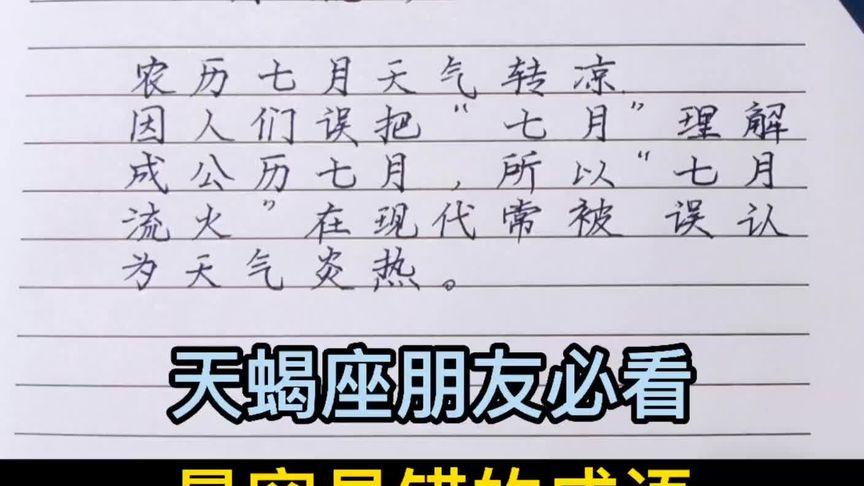 农历七月天气转凉.
因人们误把“七月”理解
成公历七月，所以“七月
流火”在现代常被误认
为天气炎热。
天蝎座朋友必看
最容易错的成语